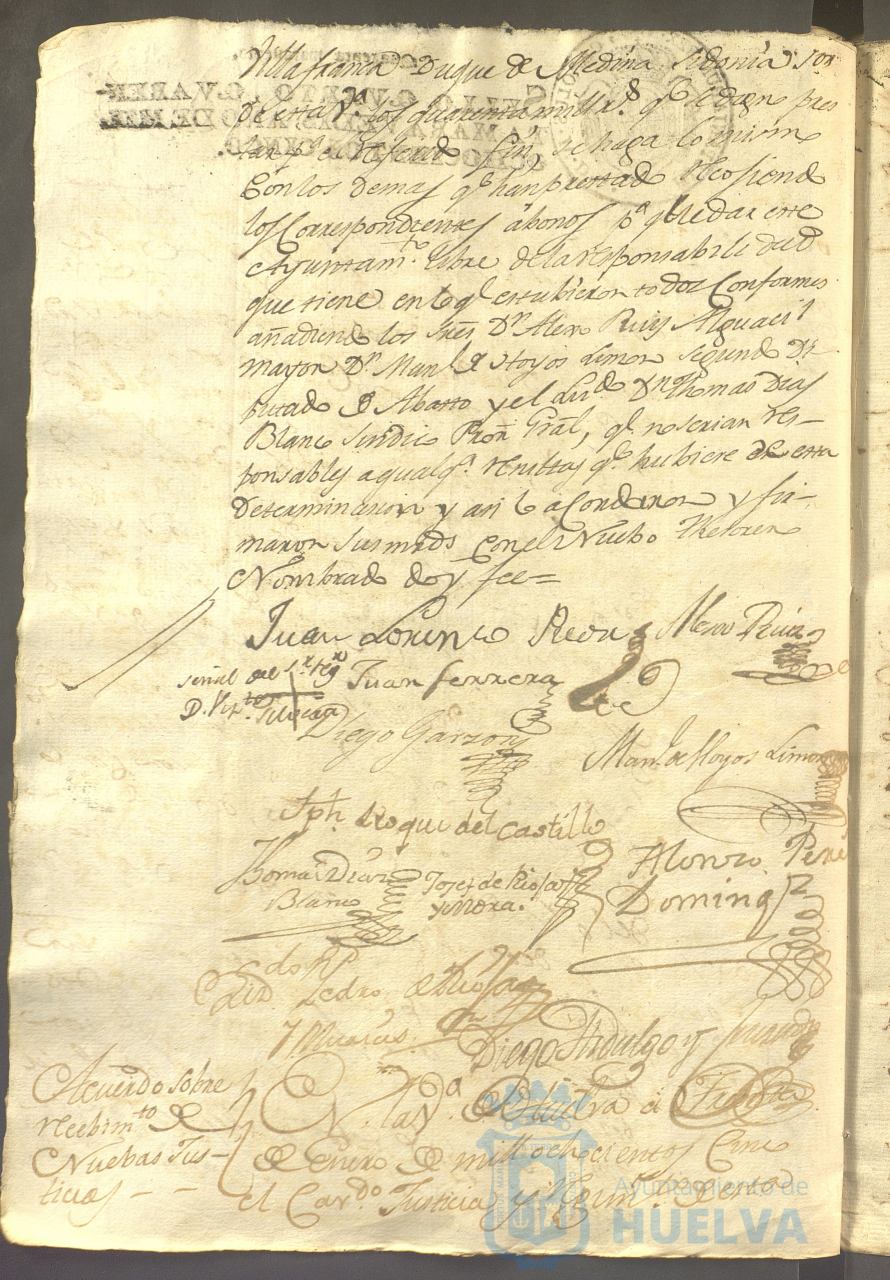 Villafranca Duque de Medina Sidonia Sor
de esta Va. los quarenta mill rs. qe. le dieron pres
tar pa. el referido fin, se haga lo mismo
con los demas qe. han prestado recosiendo
los Correspondientes abonos pa. quedar este
Ayuntamto. libre de la responsabilidad
que tiene en lo ql. estubieron todos Conformes
añadiendo los Sres. Dn. Alexo Ruiz Alguacil
mayor Dn. Manl. de Hoyos Limon segundo Di-
putado de Abasto y el Licdo. Dn. Thomas Dias
Blanco Sindico Pror. Gral, qe. no serian res-
ponsables a qualqa. resultas qe. hubiere de esta
Determinacion y asi lo acordaron y fir-
maron sus mrds con el Nuebo Thesorero
Nombrado doy fee=
Juan Lorenco Alexo Ruiz
señal del Sr. regor
Juan ferrera
D. Vizte.
Diego Garzon
Manl. de Hoyos Limon
Jph. Roque del Castillo
Thomas Diaz
Blanco
Josef de Rioja
y Mora.
Alonzo Perez
Domingz
Licdo. Pedro de Rioja
Diego Hidalgo y
Acuerdo sobre
recebimto. de
Nuebas Jus-
ticias
En la Va. de Huelva a
de Enero de mill ochocientos Cinco
el Cavdo. Justicia y Regimto. de esta
Ayuntamiento de
HUELVA